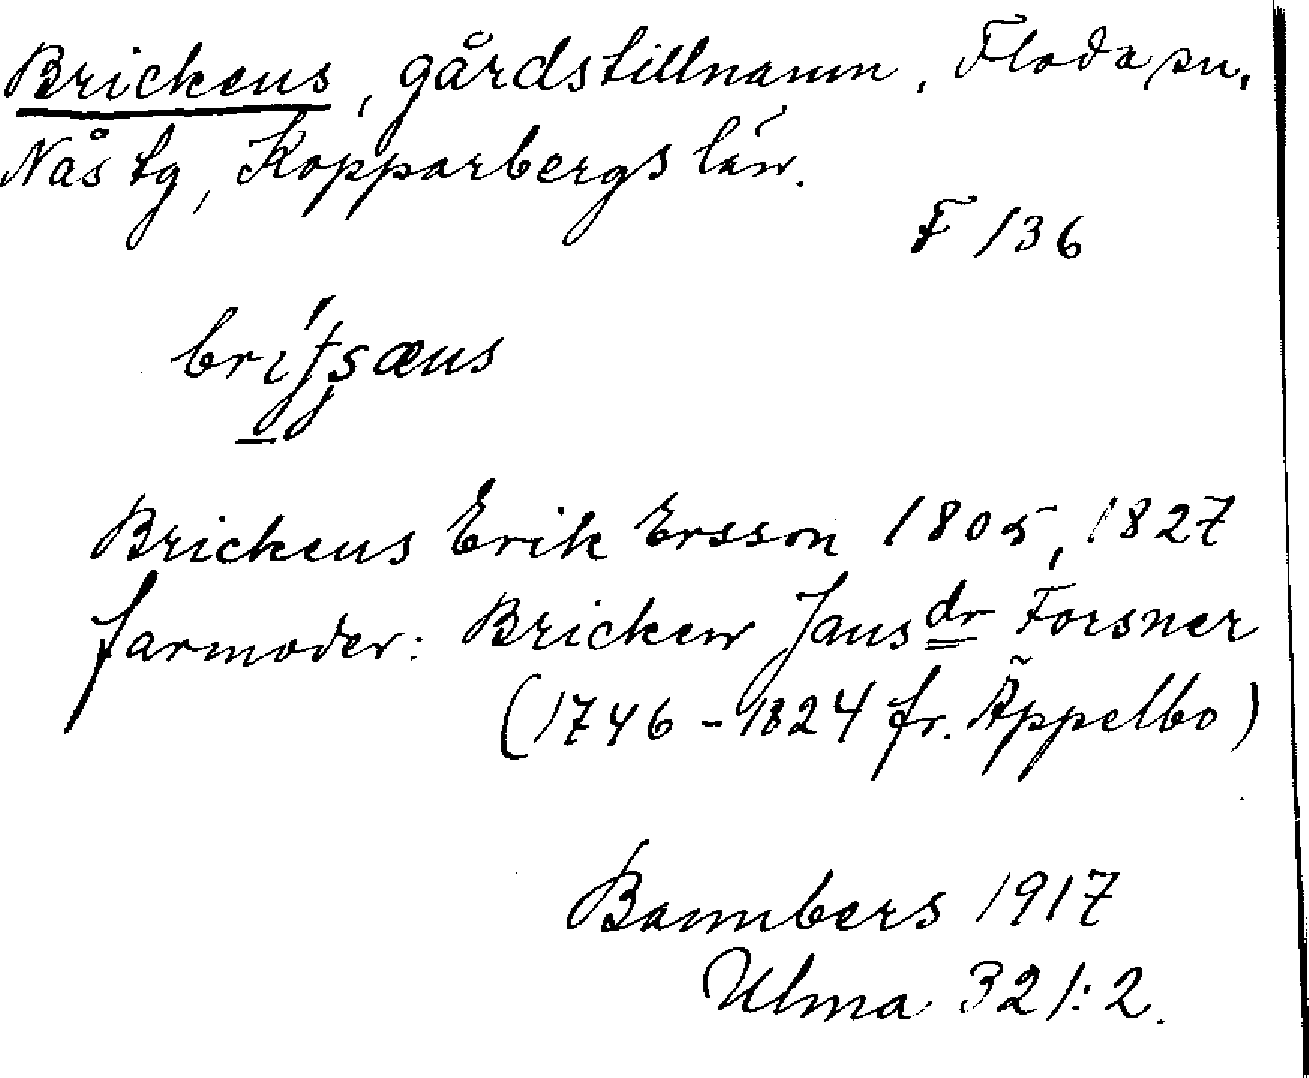 Brickens, gårdstillnamn, Floda sn,
Nås tg, Kopparbergs län.
F 136
Brickens Erik Ersson 1805, 1827
farmoder: Bricken Jansdr Forsner
(1746-1824 fr. Äppelbo)
Bannbers 1917
Ulma 321:2.